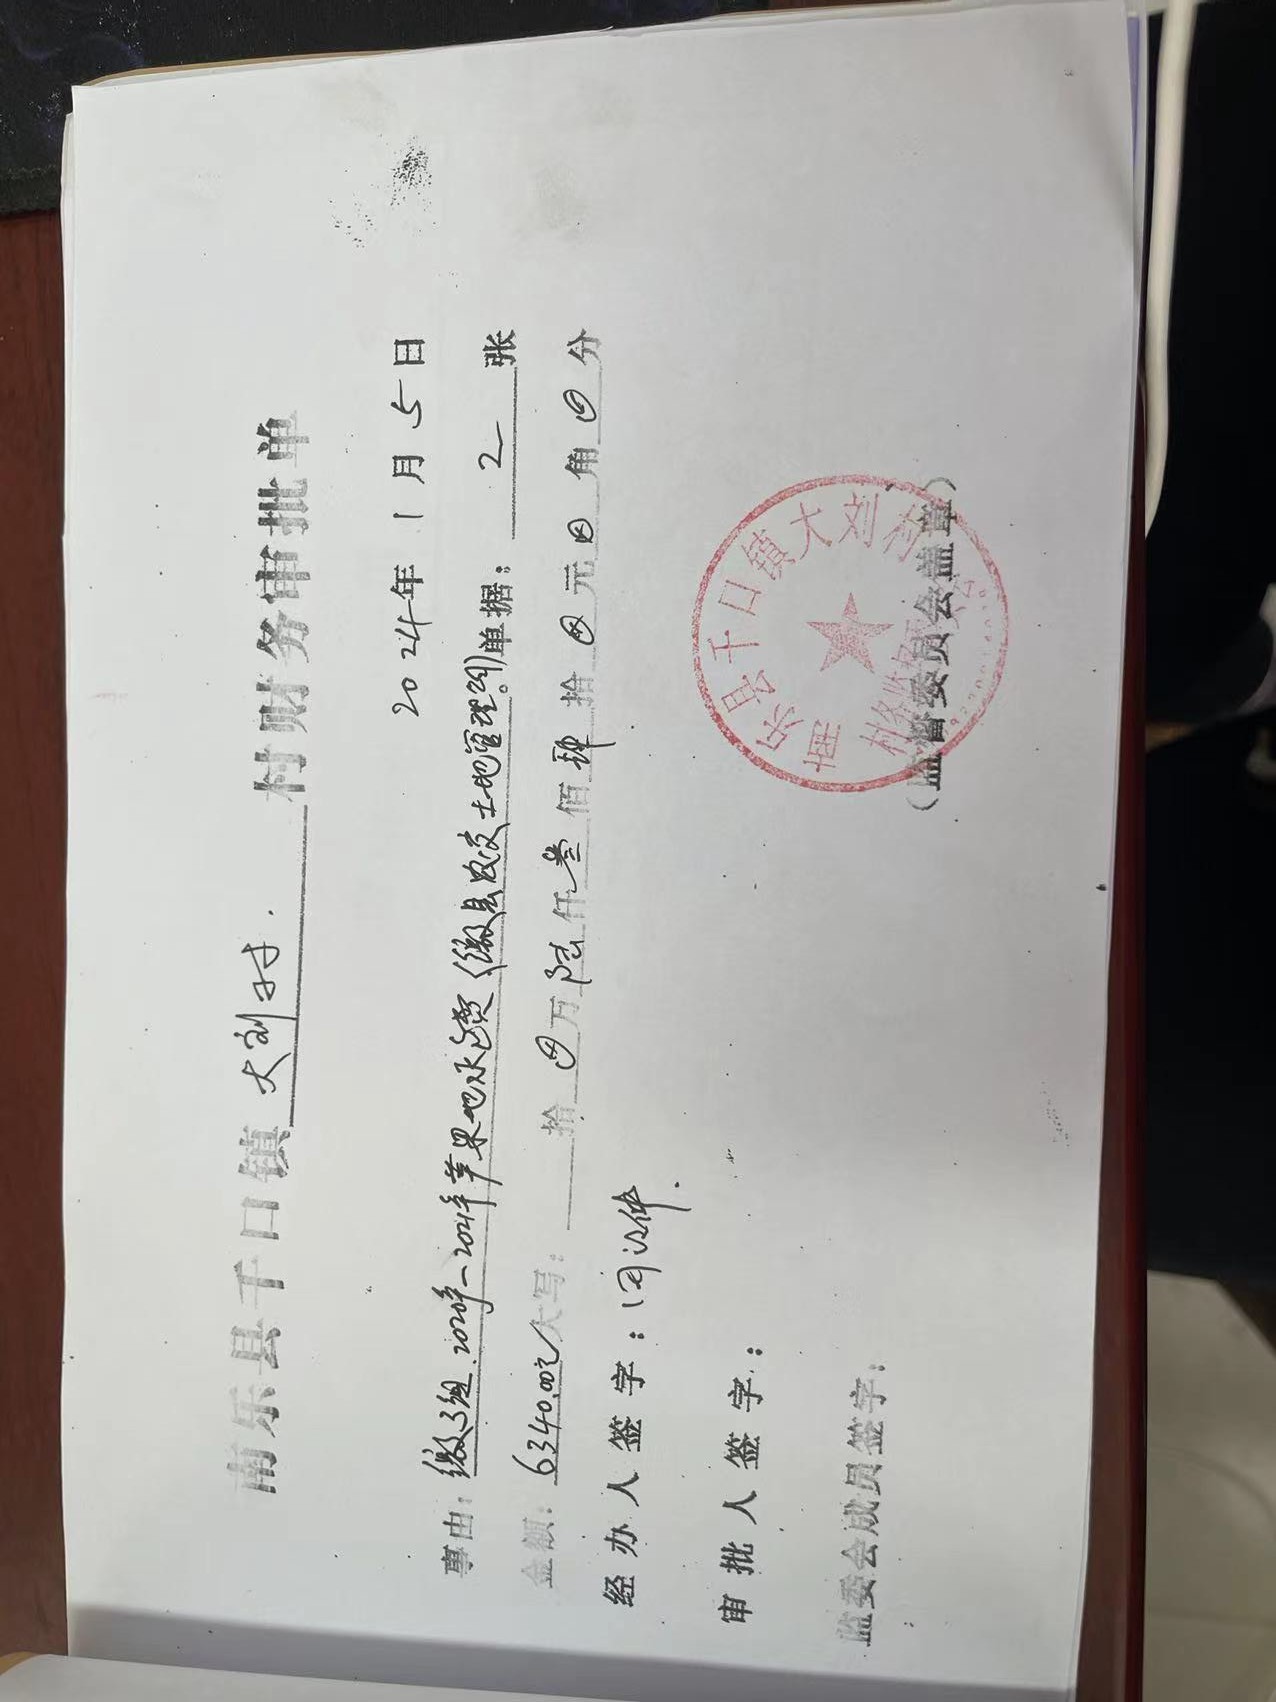 南乐县千口镇 大刘村. 村财务审批单
2024年 1 月 5 日
事由: 缴3组.2020年-2021年苹果地水费(缴县农交土地管理所)单据: 2 张
金额: 6340.00元大写: 拾 万陆仟叁佰肆拾 元 角 分
经办人签字:
审批人签字:
监委会成员签字:
南乐县千口镇大刘村
村务监督委员会
(监督委员会盖章)